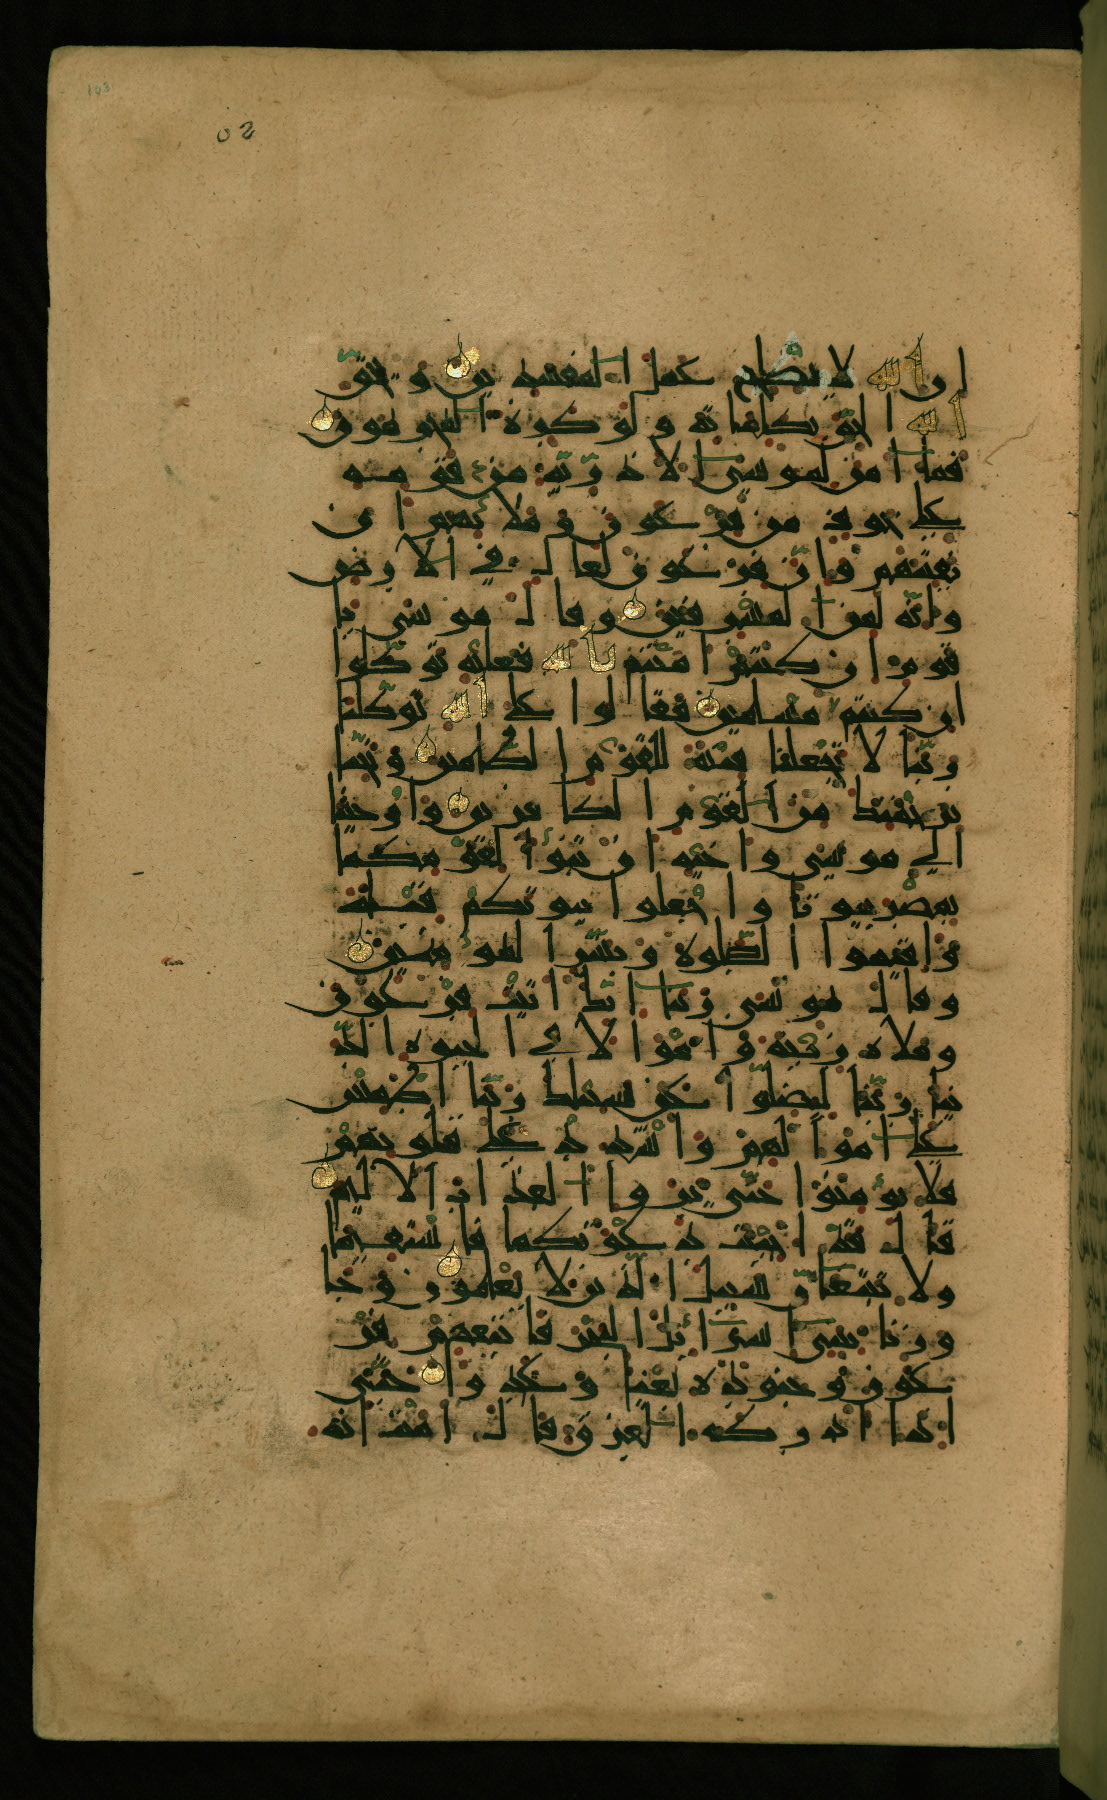 103
ان الله لا يصلح عمل المفسدين ويحق
الله الحق بكلماته ولو كره المجرمون
فما امن لموسى الا ذرية من قومه
على خوف من فرعون وملائهم ان
يفتنهم وان فرعون لعال في الارض
وانه لمن المسرفين وقال موسى يا
قوم ان كنتم امنتم بالله فعليه توكلوا
ان كنتم مسلمين فقالوا على الله توكلنا
ربنا لا تجعلنا فتنة للقوم الظالمين ونجنا
برحمتك من القوم الكافرين واوحينا
الى موسى واخيه ان تبوا لقومكما
بمصر بيوتا واجعلوا بيوتكم قبلة
واقيموا الصلوة وبشر المؤمنين
وقال موسى ربنا انك اتيت فرعون
وملاه زينة واموالا في الحيوة الد
نيا ربنا ليضلوا عن سبيلك ربنا اطمس
على اموالهم واشدد على قلوبهم
فلا يؤمنوا حتى يروا العذاب الاليم
قال قد اجيبت دعوتكما فاستقيما
ولا تتبعان سبيل الذين لا يعلمون وجا
وزنا ببني اسرائيل البحر فاتبعهم فر
عون وجنوده بغيا وعدوا حتى
اذا ادركه الغرق قال امنت انه